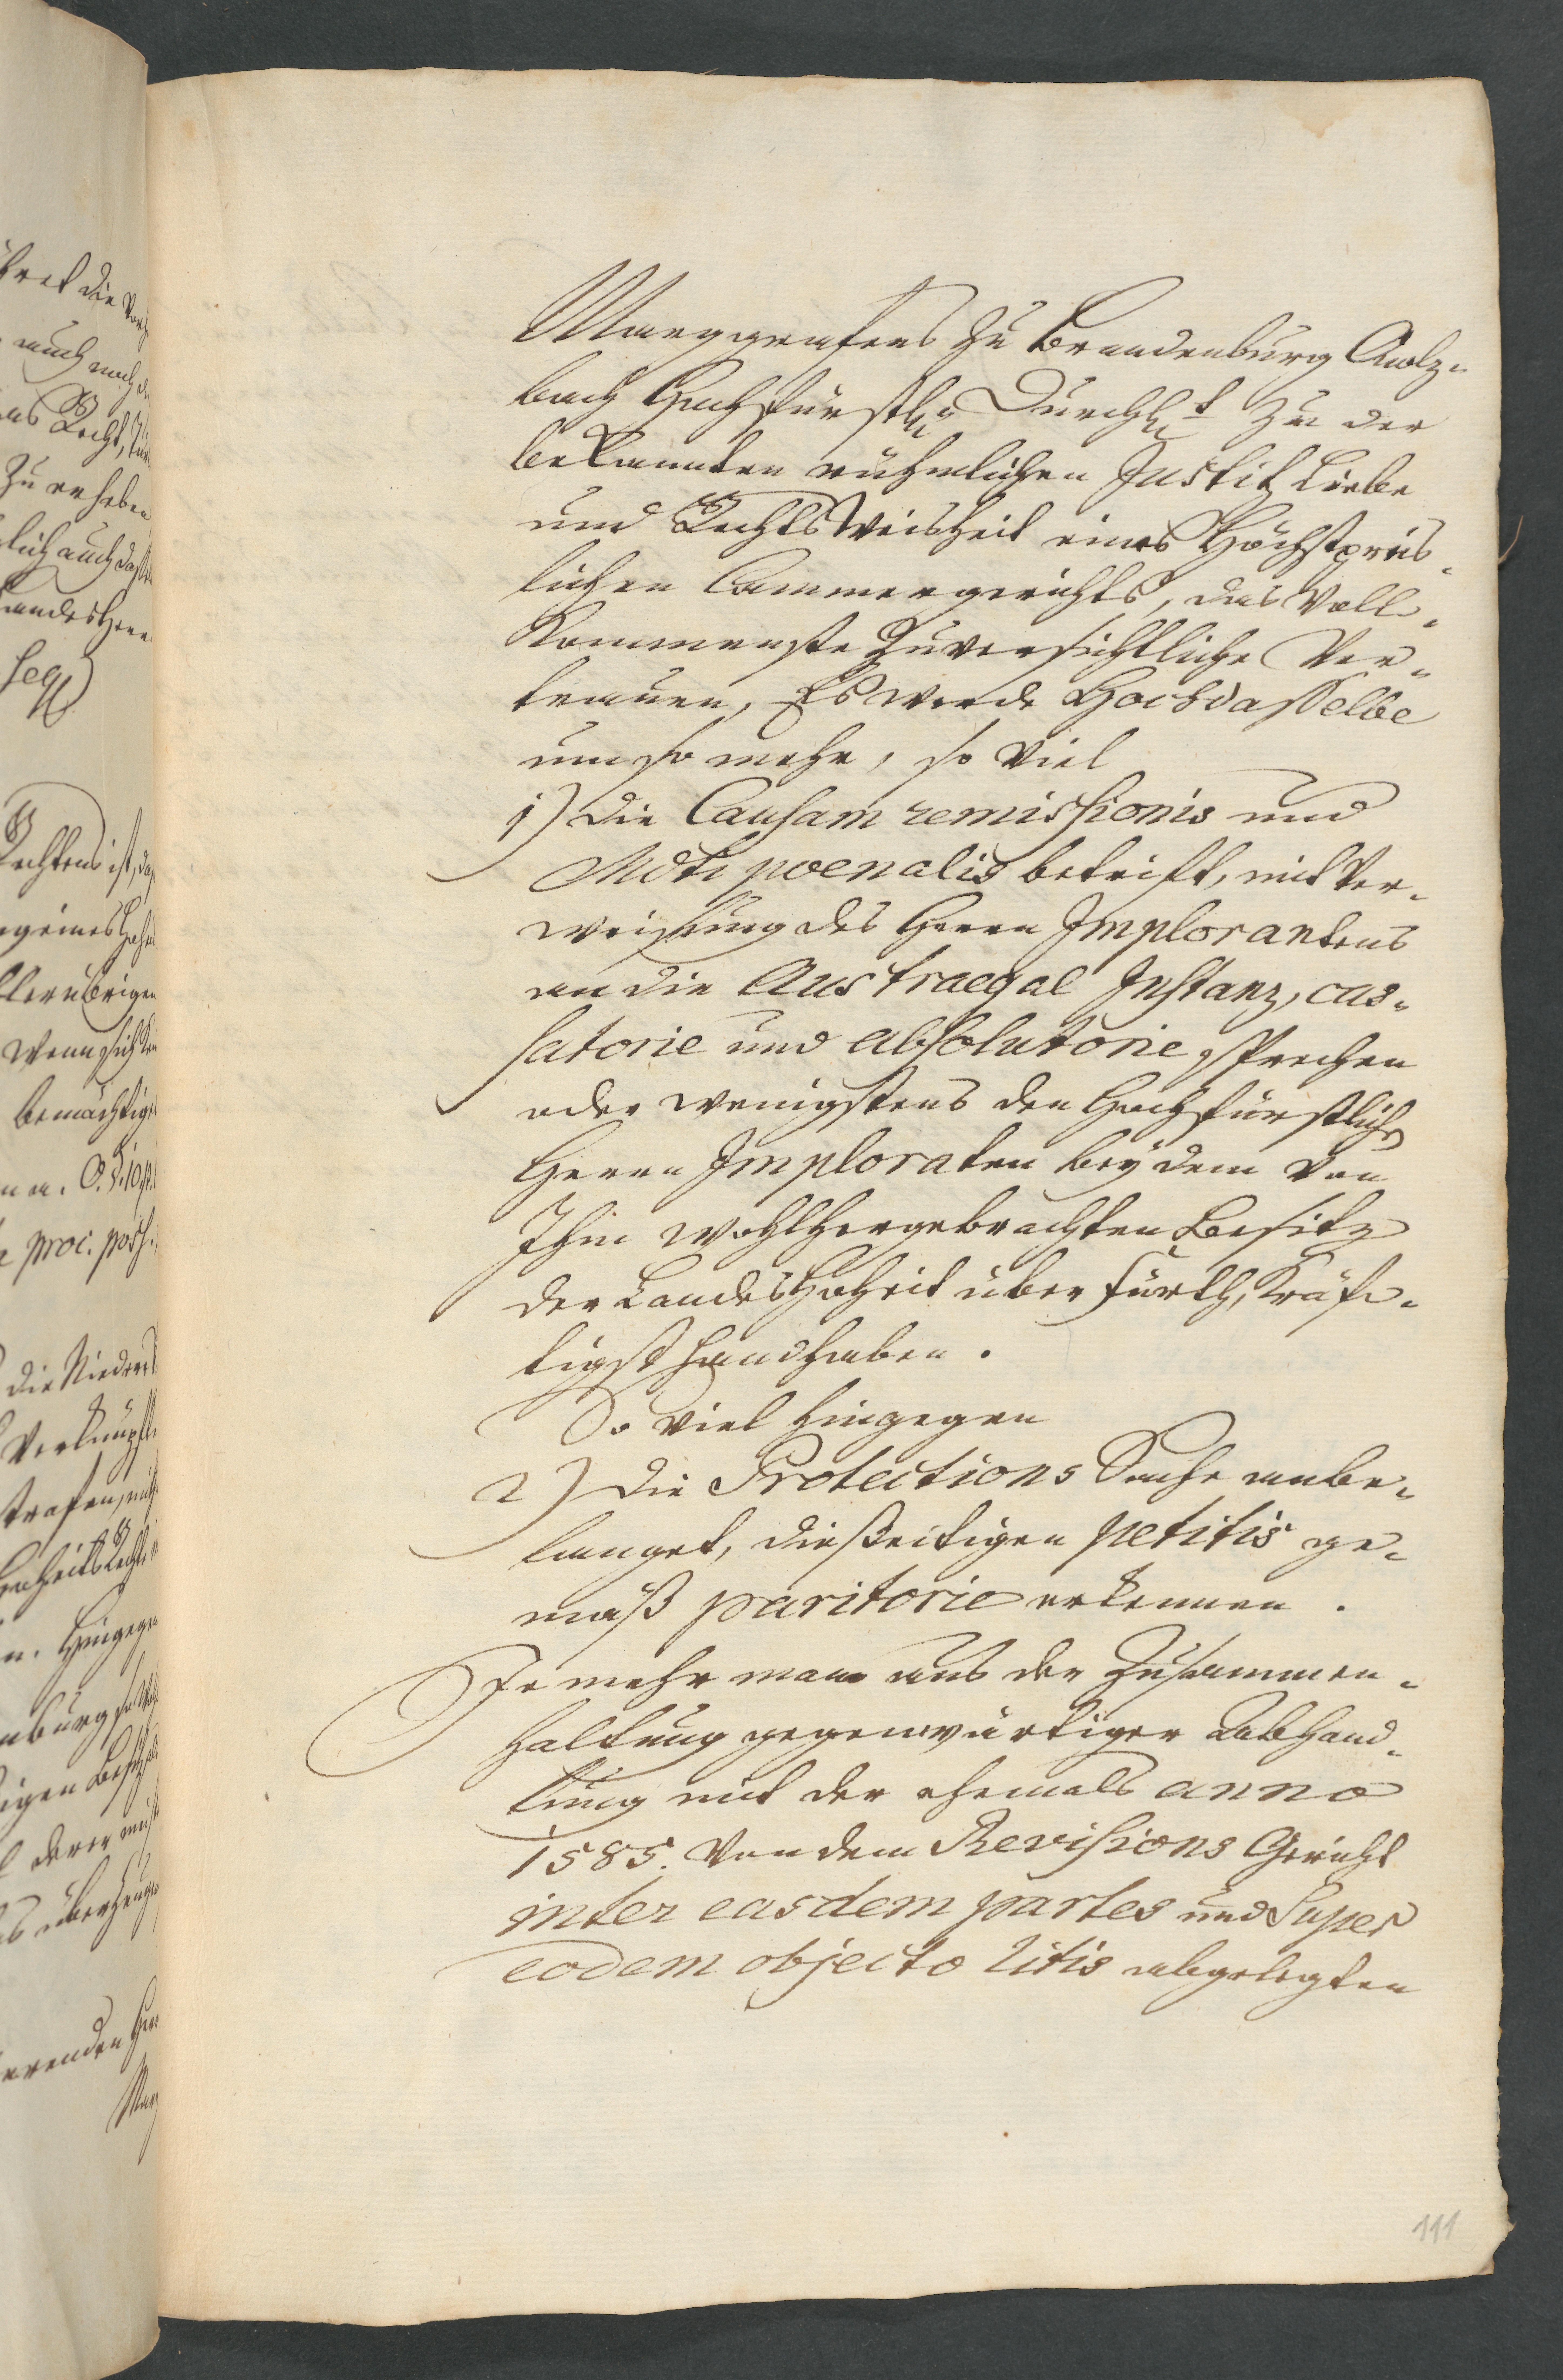 Marggrafens zu Brandenburg Onolz-
bach Hochfürstl. Durchl. zu der
bekannten rühmlichen Justitz Liebe
und Rechts Weisheit eines Höchstpreis-
lichen Cammergerichts, das Voll-
kommenste Zuversichtliche Ver-
trauen, Es werde Hochdasselbe
um so mehr, so viel
1) die Causam remissionis und
Mdti poenalis betrift, mit Ver-
weisung des Herrn Implorantens
an die Austraegal Instanz, cas-
satorie und absolutorie sprechen
oder wenigstens den Hochfürstlichen
Herrn Imploraten bey dem von
Ihm wohlhergebrachten Besitz
der LandesHoheit über Fürth, kräf-
tigst handhaben.
So viel hingegen
2) die Protections Sache anbe-
langet, dießeitigen petitis ge-
mäß paritorie erkennen.
Je mehr man aus der Zusammen-
haltung gegenwärtiger Abhand-
lung mit der ehemals anno
1585. von dem Revisions Gericht
inter easdem partes und super
eodem objecto litis abgelegten
111